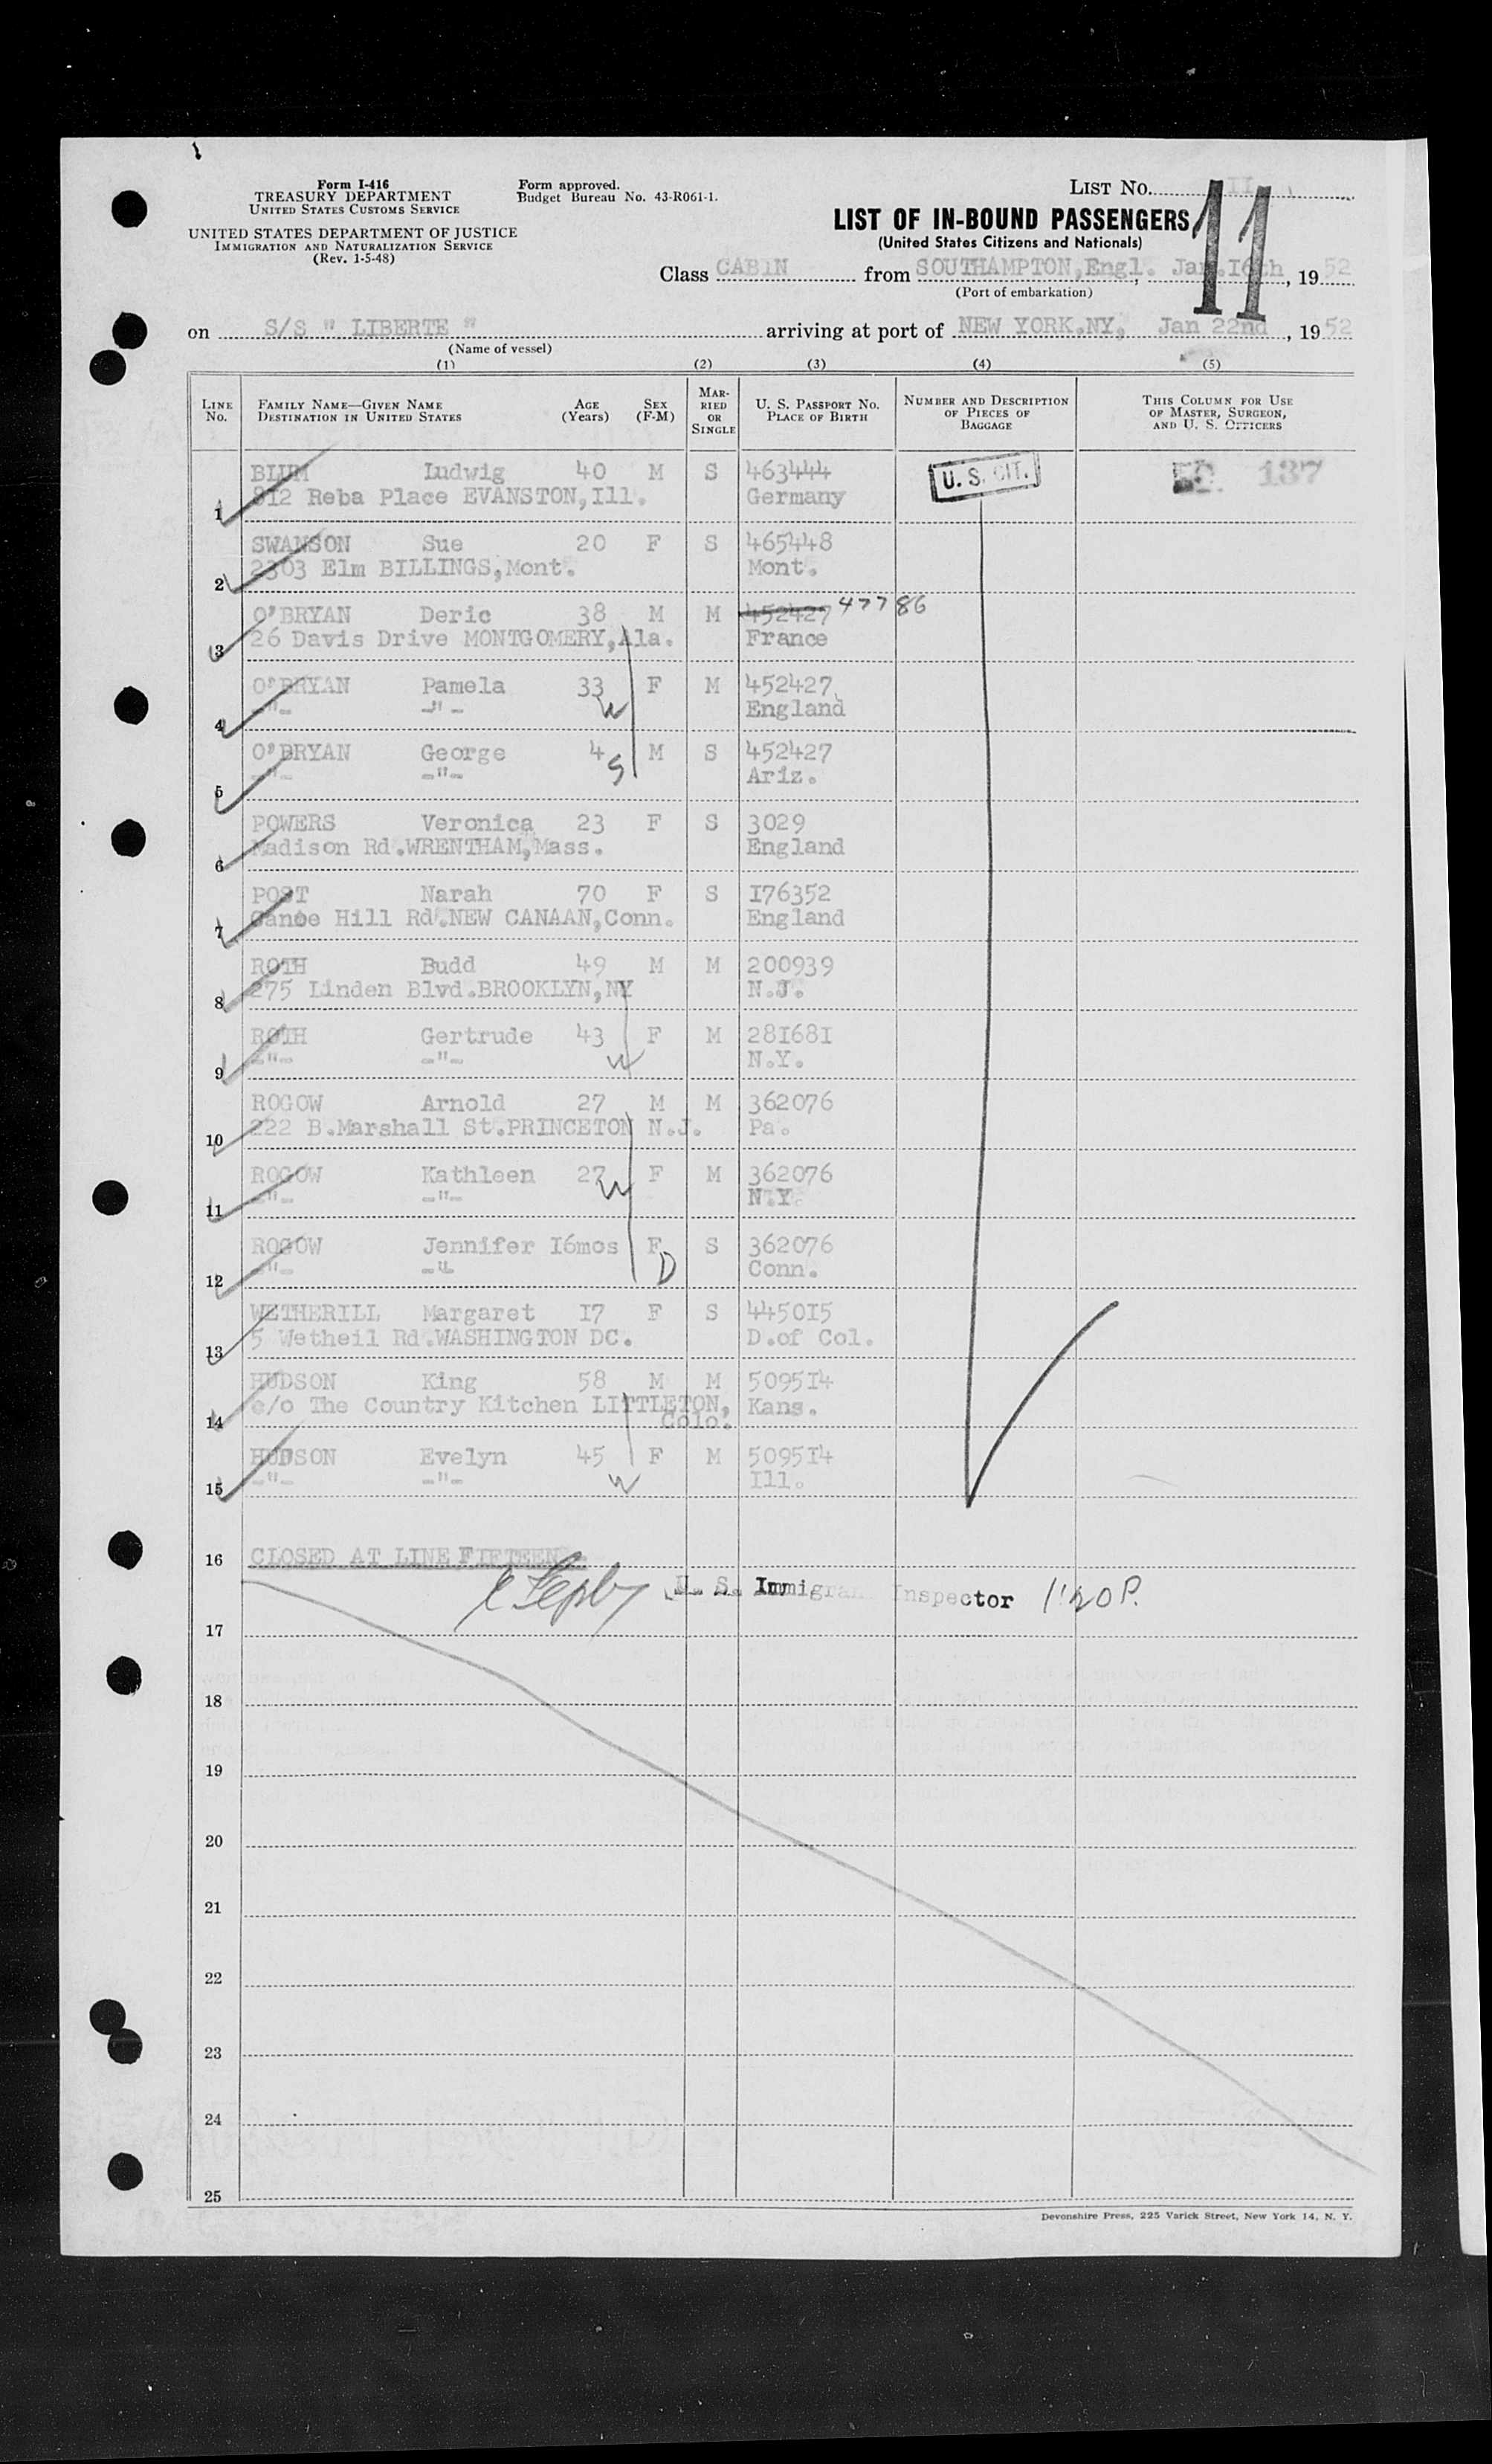 Form I-416
TREASURY DEPARTMENT
UNITED STATES CUSTOMS SERVICE
UNITED STATES DEPARTMENT OF JUSTICE
IMMIGRATION AND NATURALIZATION SERVICE
(Rev. 1-5-48)
Form approved.
Budget Bureau No. 43-R061-1.
LIST NO. II
11
LIST OF IN-BOUND PASSENGERS
(United States Citizens and Nationals)
Class CABIN from SOUTHAMPTON,Engl. Jan.16th, 1952
(Port of embarkation)
on S/S " LIBERTE " arriving at port of NEW YORK.NY, Jan 22nd, 1952
(Name of vessel)
(1) (2) (3) (4) (5)
LINE No. FAMILY NAME—GIVEN NAME DESTINATION IN UNITED STATES AGE (Years) SEX (F-M) MARRIED OR SINGLE U. S. PASSPORT NO. PLACE OF BIRTH NUMBER AND DESCRIPTION OF PIECES OF BAGGAGE THIS COLUMN FOR USE OF MASTER, SURGEON, AND U. S. OFFICERS
BLUM Ludwig 40 M S 463444 U. S. CIT. 137
1 812 Reba Place EVANSTON,Ill. Germany
SWANSON Sue 20 F S 465448
2 2303 Elm BILLINGS,Mont. Mont.
O'BRYAN Deric 38 M M 452427 47786
3 26 Davis Drive MONTGOMERY,Ala. France
O'BRYAN Pamela 33 W F M 452427
4 -"- -"- England
O'BRYAN George 4 S M S 452427
5 -"- -"- Ariz.
POWERS Veronica 23 F S 3029
6 Madison Rd.WRENTHAM,Mass. England
POST Narah 70 F S I76352
7 Canoe Hill Rd.NEW CANAAN,Conn. England
ROTH Budd 49 M M 200939
8 275 Linden Blvd.BROOKLYN,NY N.J.
ROTH Gertrude 43 F M 28I68I
9 -"- -"- W N.Y.
ROGOW Arnold 27 M M 362076
10 222 B.Marshall St.PRINCETON N.J. Pa.
ROGOW Kathleen 27 W F M 362076
11 -"- -"- N.Y.
ROGOW Jennifer I6mos F S 362076
12 -"- -"- D Conn.
WETHERILL Margaret I7 F S 4450I5
13 5 Wetheil Rd.WASHINGTON DC. D.of Col.
HUDSON King 58 M M 5095I4
14 c/o The Country Kitchen LITTLETON, Colo. Kans.
HUDSON Evelyn 45 F M 5095I4
15 -"- -"- W Ill.
16 CLOSED AT LINE FIFTEEN
U. S. Immigran Inspector 1:20 P.
17
18
19
20
21
22
23
24
25
Devonshire Press, 225 Varick Street, New York 14, N. Y.